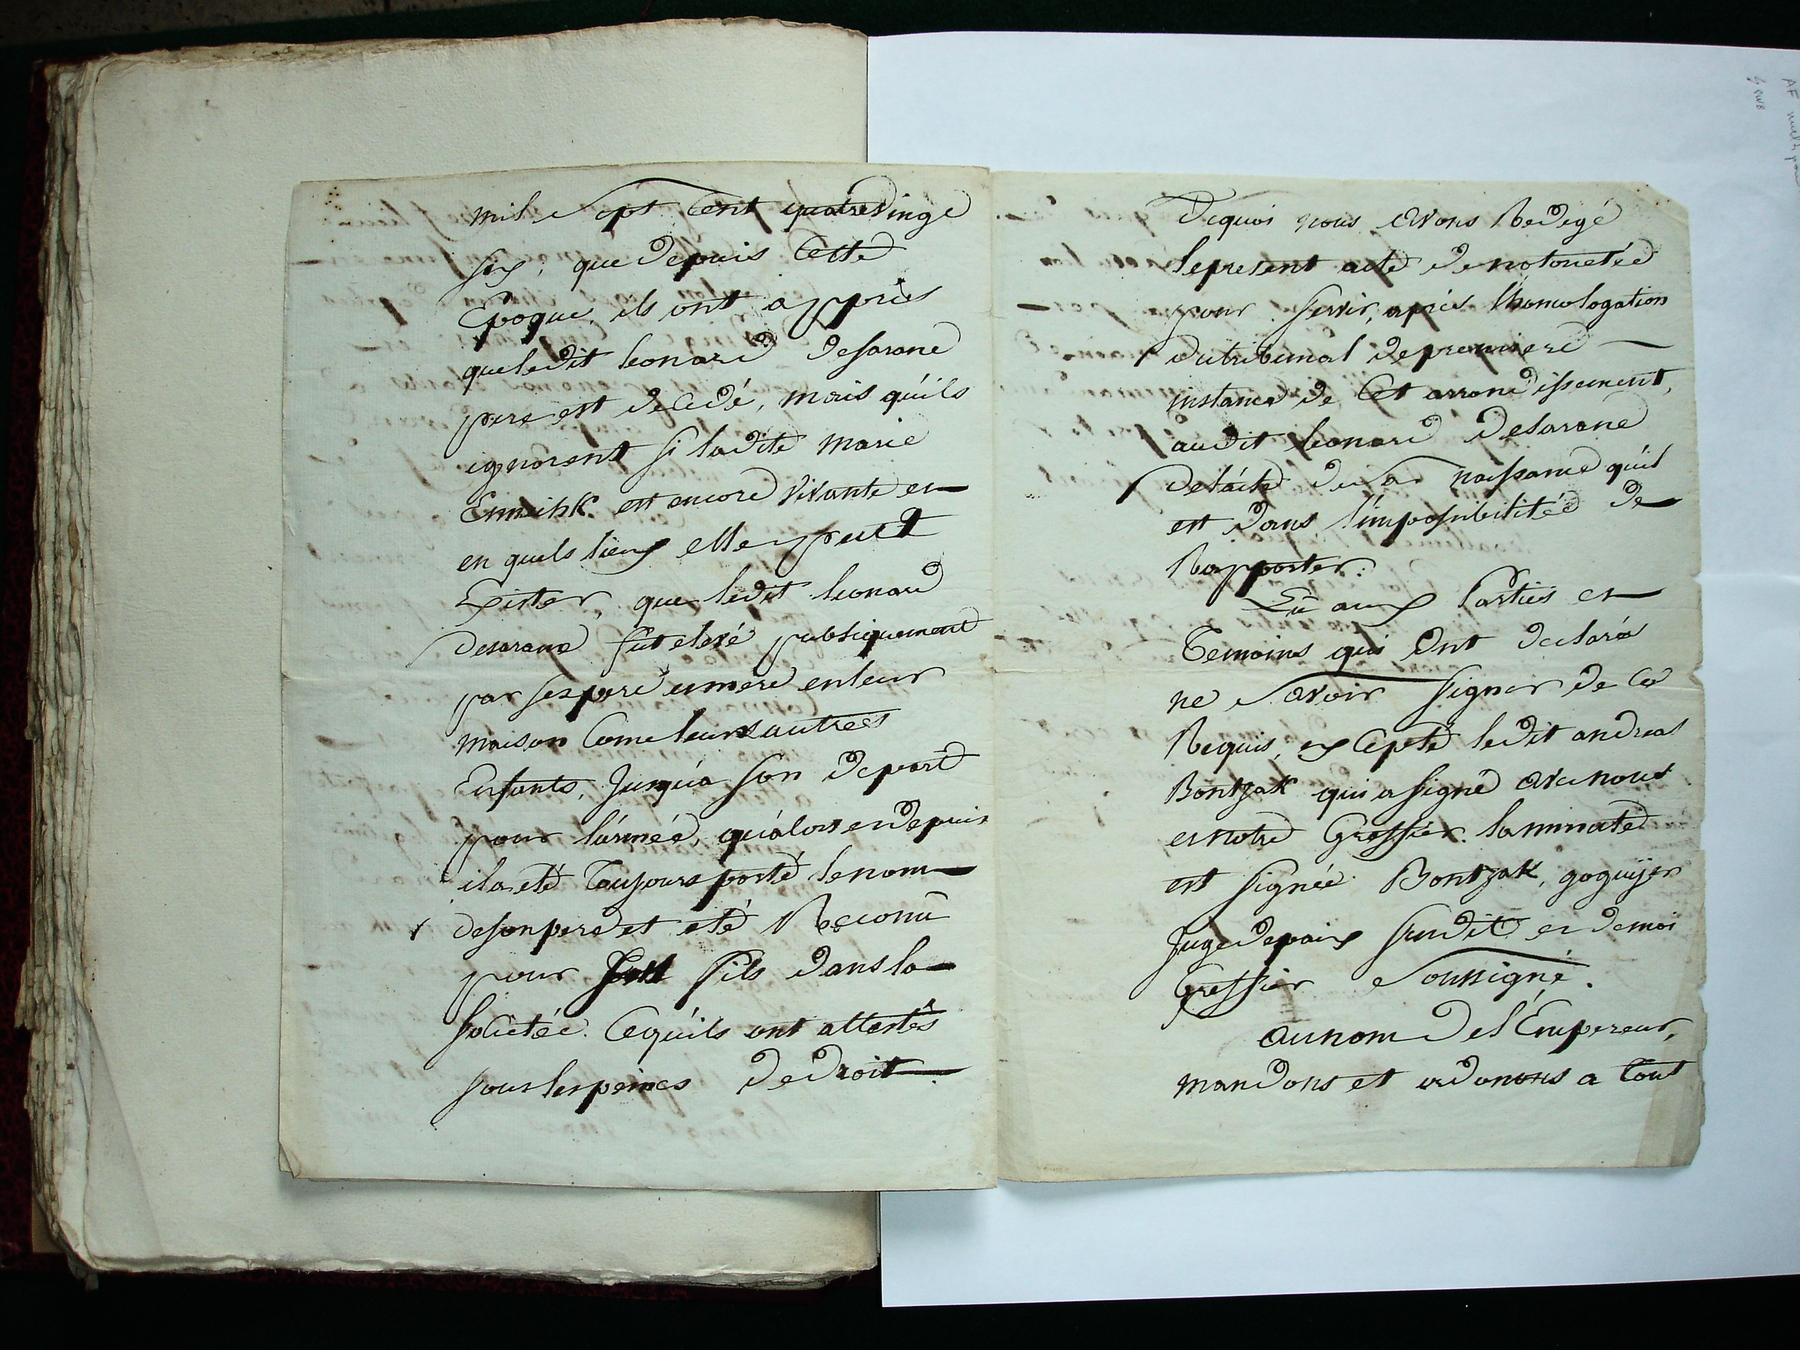 mil Sept Cent quatrevingt
six; que depuis Cette
Epoque ils ont appris
queledit leonard desarane
pere est decedé, mais qu'ils
ignorent si ladite marie
est encore vivante en
en quels lieux elle peut
Exister, que ledit leonard
desarane fut elevé publiquement
par ses pere et mere enleur
maison Come leurs autres
Enfants, Jusqu'a son depart
pour l'armée, qu'alors endepuis
ila eté Toujours porté lenom
desonpere et eté Reconu
pour son fils dansla
Societée. Cequ'ils ont attestés
sous lespeines de droit.
Dequoi nous avons Redegé
lepresent acte denotorietée
pour servir, après l'homologation
dutribunal depremiere
instance de Cet arrondissement,
audit leonard desarane
de sa naissance qu'il
est dans l'impossibilitée de
Rapporter.
Lû aux Parties et
Temoins qui Ont declaré
ne Savoir signer de Ce
Requis, exCepté ledit andreas
Bontzak qui a signé avecnous
etnotre Greffier. laminute
est signée Bontzak, goguijer
Jugedepaix susdit et demoi
Greffier Soussigné.
aunom del'Empereur,
mandons et ordonons a tout